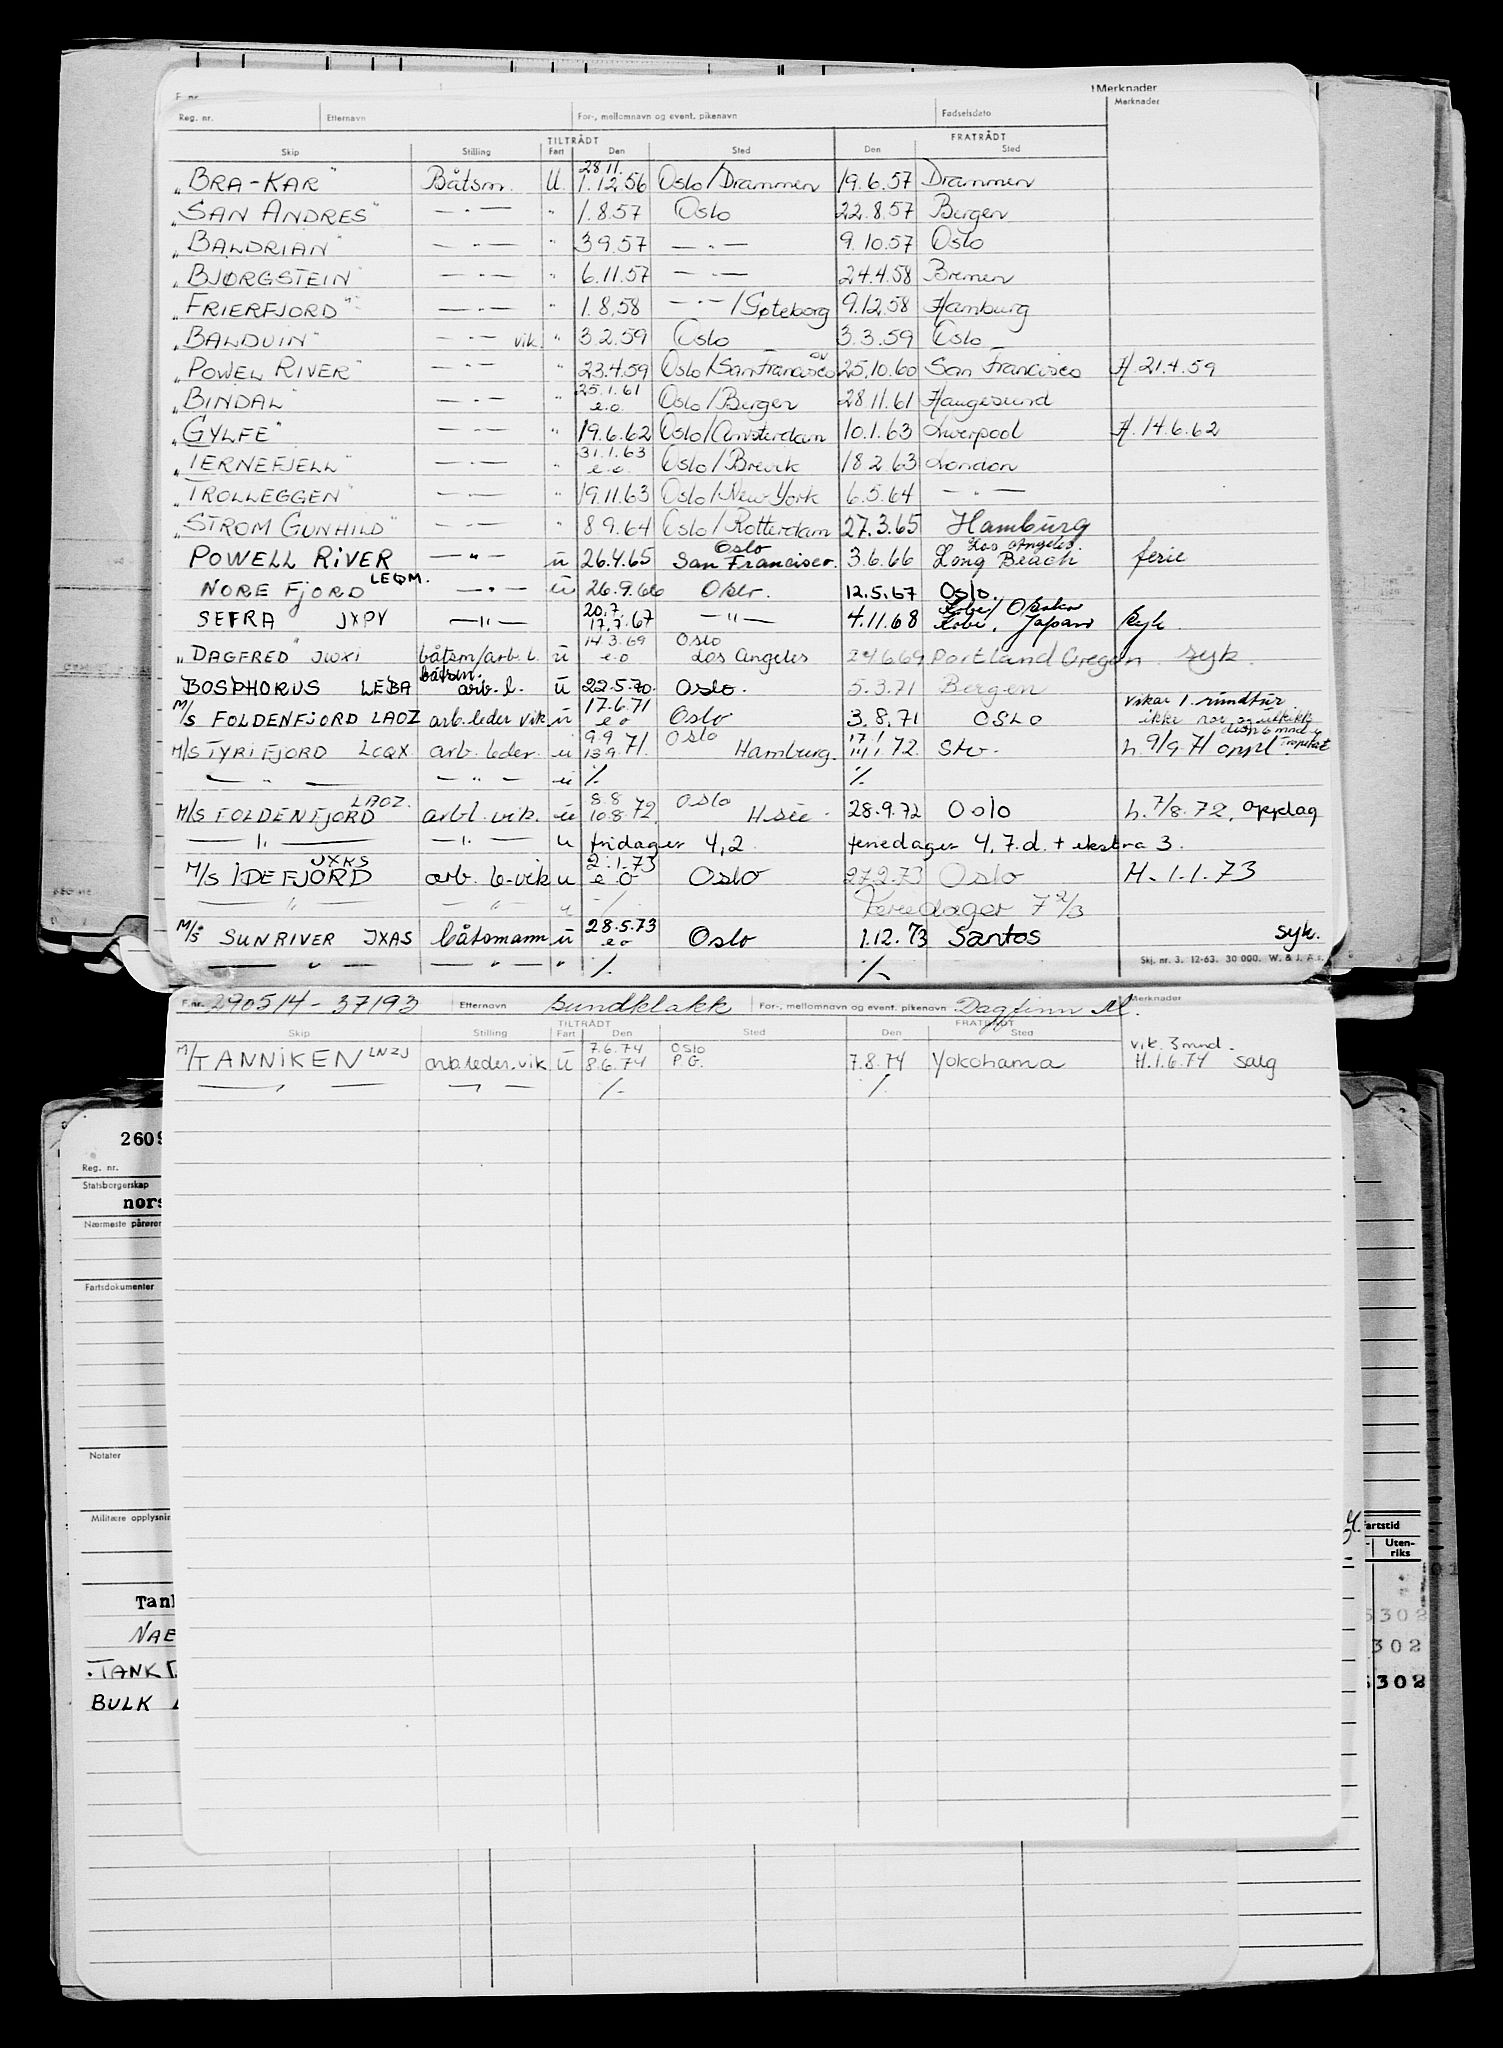 F. nr. Merknader
Reg. nr. Etternavn For-, mellomnavn og event. pikenavn Fødselsdato Merknader
TILTRÅDT FRATRÅDT
Skip Stilling Fart Den Sted Den Sted
28.11.
"BRA-KAR" Båtsm. U. 1.12.56 Oslo/Drammen 19.6.57 Drammen
"SAN ANDRES" — " — " 1.8.57 Oslo 22.8.57 Bergen
"BALDRIAN" — " — " 3.9.57 — " — 9.10.57 Oslo
"BJØRGSTEIN" — " — " 6.11.57 — " — 24.4.58 Bremen
"FRIERFJORD" — " — " 1.8.58 — " — /Gøteborg 9.12.58 Hamburg
"BALDUIN" — " — vik. " 3.2.59 Oslo 3.3.59 Oslo
"POWEL RIVER" — " — " 23.4.59 Oslo/San Francisco 25.10.60 San Francisco H. 21.4.59
25.1.61
"BINDAL" — " — " e.o. Oslo/Bergen 28.11.61 Haugesund
"GYLFE" — " — " 19.6.62 Oslo/Amsterdam 10.1.63 Liverpool H. 14.6.62
31.1.63
"TERNEFJELL" — " — " e.o. Oslo/Brevik 18.2.63 London
"TROLLEGGEN" — " — " 19.11.63 Oslo/New York 6.5.64 — " —
"STROM GUNHILD" — " — " 8.9.64 Oslo/Rotterdam 27.3.65 Hamburg
Oslo Los Angeles.
POWELL RIVER — " — u 26.4.65 San Francisco. 3.6.66 Long Beach ferie
LEQM.
NORE FJORD — " — u 26.9.66 Oslo. 12.5.67 Oslo.
20.7. Kobe/Osaka
SEFRA JXPV — " — u 17.7.67 — " — 4.11.68 Kobe, Japan syk.
14.3.69 Oslo
"DAGFRED" JWXI båtsm/arb. l. u e.o Los Angeles 24.6.69 Portland Oregon syk.
båtsm.
BOSPHORUS LEBA arb. l. u 22.5.70. Oslo. 5.3.71 Bergen
17.6.71 vikar 1. rundtur
M/S FOLDENFJORD LAOZ arb. leder vik u e o Oslo 3.8.71 OSLO
9.9 Oslo 17.1
M/S TYRIFJORD LCQX arb. leder. u 13.9.71. Hamburg. 11.1.72. Stv. h. 9/9.71 oppl
— " — — " — u ./. ./.
LAOZ. 8.8 Oslo
M/S FOLDENFJORD arbl. vik. u 10.8.72. 28.9.72 Oslo h. 7/8.72. oppdag
— " — — " — u fridager 4,2 feriedager 4,7.d. + ekstra 3.
JXKS 2.1.73
M/S IDEFJORD arb. l-vik u e o Oslo 27.2.73 Oslo H. 1.1.73
— " — — " — u ./. Feriedager 7 2/3
28.5.73
M/S SUNRIVER JXAS båtsmann u e o Oslo 1.12.73 Santos syk.
— " — — " — " ./. ./.
Skj. nr. 3. 12-63. 30 000. W. & J. A.s.
F.nr. 290514-37193 Etternavn Sundklakk For-, mellomnavn og event. pikenavn Dagfinn M. Merknader
TILTRÅDT FRATRÅDT
Skip Stilling Fart Den Sted Den Sted
7.6.74 Oslo vik. 3 mnd.
M/T ANNIKEN LNZJ arb.leder.vik u 8.6.74 P.G. 7.8.74 Yokohama H.1.6.74 Salg
— " — — " — ./. ./.
2609
Reg. nr.
Statsborgerskap
nors
Nærmeste pårøren
Fartsdokumenter
Notater
Militære opplysnin
artstid
Uten-
riks
Tank
NAE
TANK
BULK
302
302
302